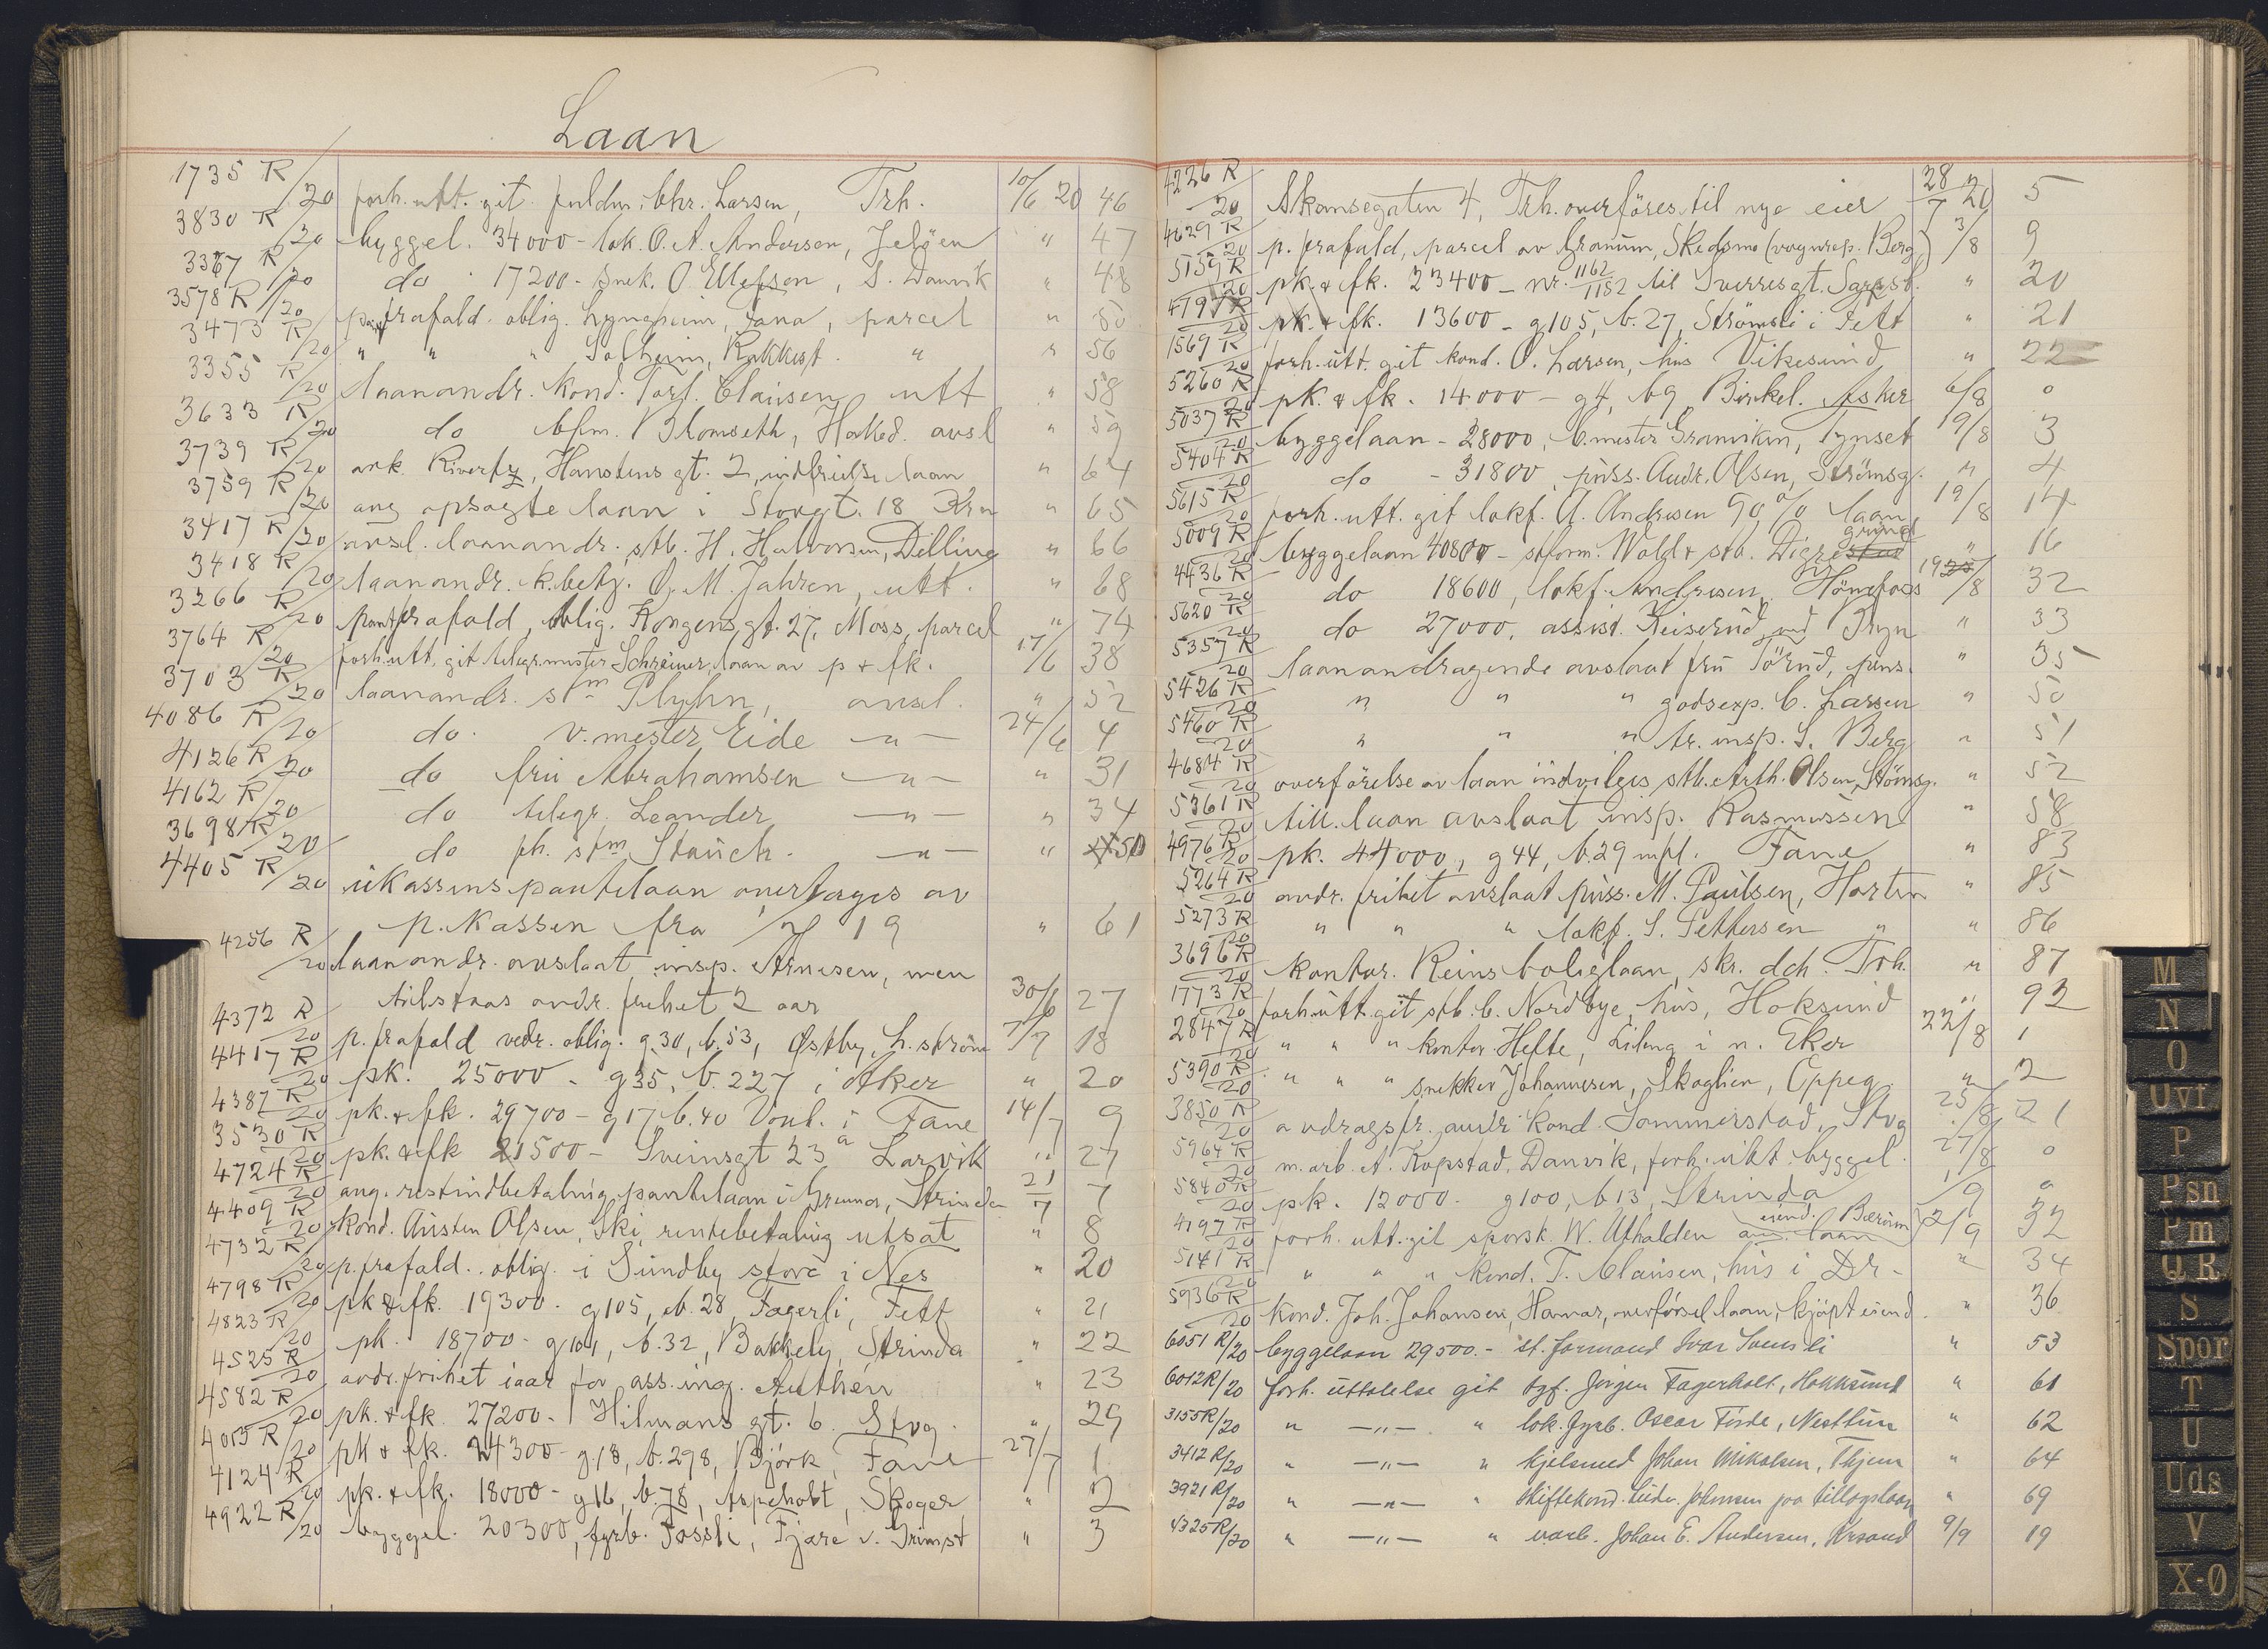 Laan
1735 R/20 forh. utt. git fuldm. Chr. Larsen, Trh. 10/6 20 46
3830 R/20 byggel. 34000 - lok. O. A. Andersen, Jeløen " 47
3367 R/20 do 17200 - snek. O. Ellefsen, S. Danvik " 48
3578 R/20 pantfrafald. oblig. Lyngheim, Fana, parcel "
3473 R/20 " " " Solheim, Rakkest. " " 56
3355 R/20 laanandr. kond. Torf. Clausen utt " 58
3633 R/20 do bfm. Blomseth, Haked. avsl " 59
3739 R/20 ark. Rivertz, Hanstens gt. 2, indfrielse laan " 64
3759 R/20 ang opsagte laan i Storgt. 18 Krn " 65
3417 R/20 avsl. laanandr. stb. H. Halvorsen, Dilling " 66
3418 R/20 laanandr. k.betj. O. M. Jahren, utt. " 68
3266 R/20 pantfrafald, oblig. Kongensgt. 27, Moss, parcel " 74
3764 R/20 forh. utt. git telegr.mester Schreiner, laan av p & fk. 17/6 38
3703 R/20 laanandr. stm Plyhn, avsl. " 52
4086 R/20 do. v.mester Eide —"— 24/6 4
4126 R/20 do fru Abrahamsen —"— " 31
4162 R/20 do telegr. Leander —"— " 34
3698 R/20 do fh. stm Stauch. —"— " 50
4405 R/20 ukassens pantelaan overtages av
p. kassen fra 1/7 19 " 61
4256 R/20 laanandr. avslaat insp. Arnesen, men
tilstaas avdr. frihet 2 aar 30/6 27
4372 R/20 p. frafald vedr. oblig. g 30, b. 53, Østby, L. strøm 7/7 18
4417 R/20 pk. 25000 - g 35, b. 227 i Aker " 20
4387 R/20 pk. & fk. 29700 - g 17, b. 40 Vout. i Fane 14/7 9
3530 R/20 pk. & fk 21500 - Sveinsgt 23 a Larvik " 27
4724 R/20 ang. restindbetaling pantelaan i Grennes, Strinda 21/7 7
4409 R/20 kond. Austen Olsen, Ski, rentebetaling utsat " 8
4732 R/20 p. frafald. oblig. i Sundby store i Nes " 20
4798 R/20 pk & fk. 19300 - g 105, b. 28, Fagerli, Fett " 21
4823 R/20 pk. 18700 - g 104, b. 32, Bakkely, Strinda " 22
4525 R/20 avdr. frihet i aar for ass. ing. Authén " 23
4582 R/20 pk. & fk. 27200 - Hilmans gt. 6 Stvg. " 29
4015 R/20 pk & fk. 24300 - g. 18, b. 298, Bjørk, Fane 27/7 1
4124 R/20 pk. & fk. 18000 - g 16, b. 78, Aspeholt, Skoger " 2
4922 R/20 byggel. 20300, fyrb. Fossli, Fjære v. Grimst " 3
4226 R/20 Skansegaten 4, Trh. overføres til nye eier 28/7 20 5
4629 R/20 p. frafald, parcel av Granum, Skedsmo (vognrep. Berg) 3/8 9
5159 R/20 pk. & fk. 23400 - nr. 1162/1182 til Sverresgt. Sarpsb. " 20
4797 R/20 pk. & fk. 13600 - g 105, b. 27, Strømsli i Fett " 21
1569 R/20 forh. utt. git kond. O. Larsen, hus Vikesund " 22
5260 R/20 pk. & fk. 14000 - g 4, b 9 Birkel. Asker 6/8 0
5037 R/20 byggelaan - 28000, b.mester Granviken, Tynset 19/8 3
5404 R/20 do - 31800, puss. Andr. Olsen, Strømsg. " 4
5615 R/20 forh. utt. git lokf. A. Andresen 90 % laan 19/8 14
5009 R/20 byggelaan 40800 - stform. Wold & stb. Digre grund " 16
4436 R/20 do 18600, lokf. Andresen, Hønefoss 19/8 32
5620 R/20 do 27000, assist. Keiserud, ved Bryn " 33
5357 R/20 laanandragende avslaat fru Tørud, pens. " 35
5426 R/20 " " " godsexp. C. Larsen " 50
5460 R/20 " " " tr. insp. S. Berg " 51
4684 R/20 overførelse av laan indvilges stb. Arth. Olsen, Strømsg. " 52
5361 R/20 till. laan avslaat insp. Rasmussen " 58
4976 R/20 pk. 44000, g 44, b. 29 mfl. Fane " 83
5264 R/20 avdr. frihet avslaat puss. M. Paulsen, Horten " 85
5273 R/20 " " " lokf. S. Pettersen " " 86
3696 R/20 kontor. Reins boliglaan, skr. dch. Trh. " 87
1773 R/20 forh. utt. git stb. C. Nordbye, hus, Hoksund " 92
2847 R/20 " " " kontor. Hefte, Lileng i n. Eker 22/8 1
5390 R/20 " " " snekker Johannesen, Skoglien, Oppeg. " 2
3850 R/20 avdragsfr. andr. kond. Sommerstad, Stvg 25/8 21
5964 R/20 m. arb. A. Kopstad, Danvik, forh. utt. byggel. 27/8 0
5840 R/20 pk. 12000 - g 100, b 13, Strinda 1/9 0
4197 R/20 forh. utt. git sporsk. W. Uthalden eiend. Bærum 2/9 32
5141 R/20 " " " kond. T. Clausen, hus i Dr - " 34
5936 R/20 kond. Joh. Johansen, Hamar, overførsel laan, kjøpt eiend. " 36
6051 R/20 byggelaan 29500.- st. formand Ivar Svensli " 53
6012 R/20 forh. uttalelse git tgf. Jørgen Fagerholt, Hokksund " 61
3155 R/20 " —"— " lok. fyrb. Oscar Førde, Nesttun " 62
3412 R/20 " —"— " kjelsmed Johan Mikalsen, Thjem " 64
3921 R/20 " —"— " skiftekond. Johnsen paa tillægslaan " 69
4325 R/20 " —"— " varb. Johan E. Andersen, Krsand 9/9 19
M
N
O
Uvf
P
Psn
Pm
Q R
S
Spor
T
U
Uds
V
X-Ø